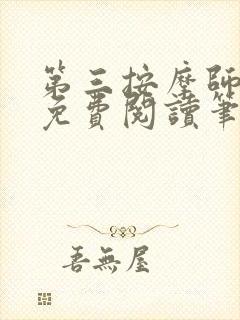 第三按摩師
免費閱讀筆
吾無屋